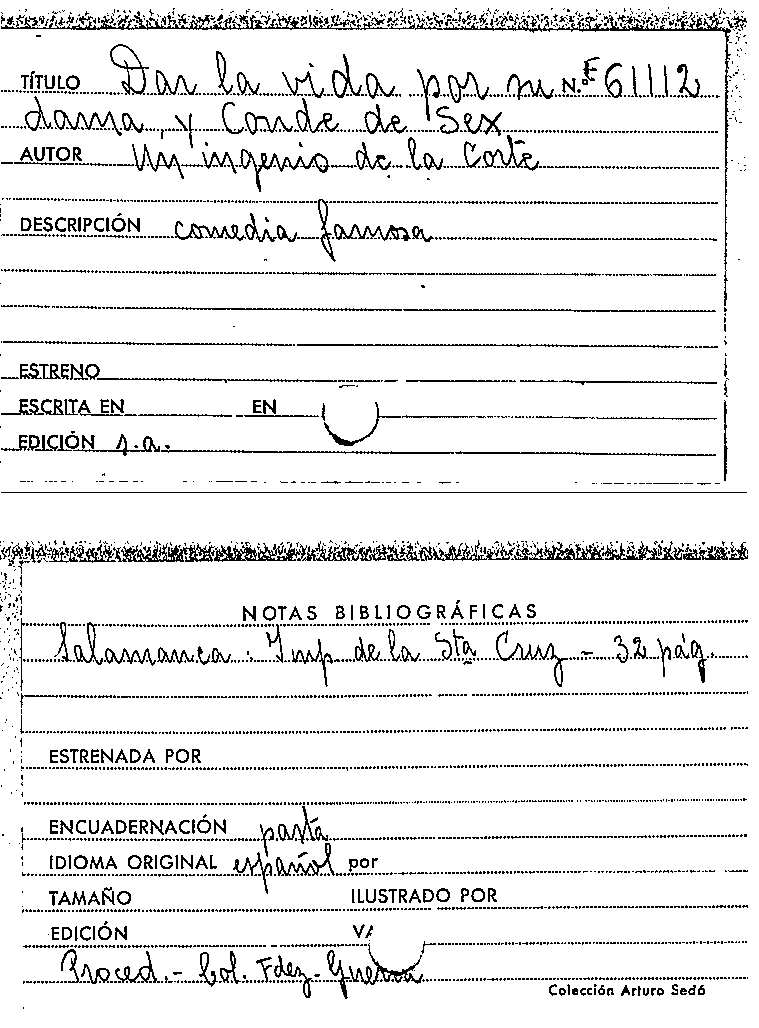 TÍTULO Dar la vida por su N.º E 61112
dama, y Conde de Sex
AUTOR Un ingenio de la Corte
DESCRIPCIÓN comedia famosa
ESTRENO
ESCRITA EN EN
EDICIÓN s.a.
NOTAS BIBLIOGRÁFICAS
Salamanca : Imp de la Sta Cruz - 32 pág.
ESTRENADA POR
ENCUADERNACIÓN pasta
IDIOMA ORIGINAL español por
TAMAÑO ILUSTRADO POR
EDICIÓN
Proced.- Col. Fdez-Guerra
Colección Arturo Sedó